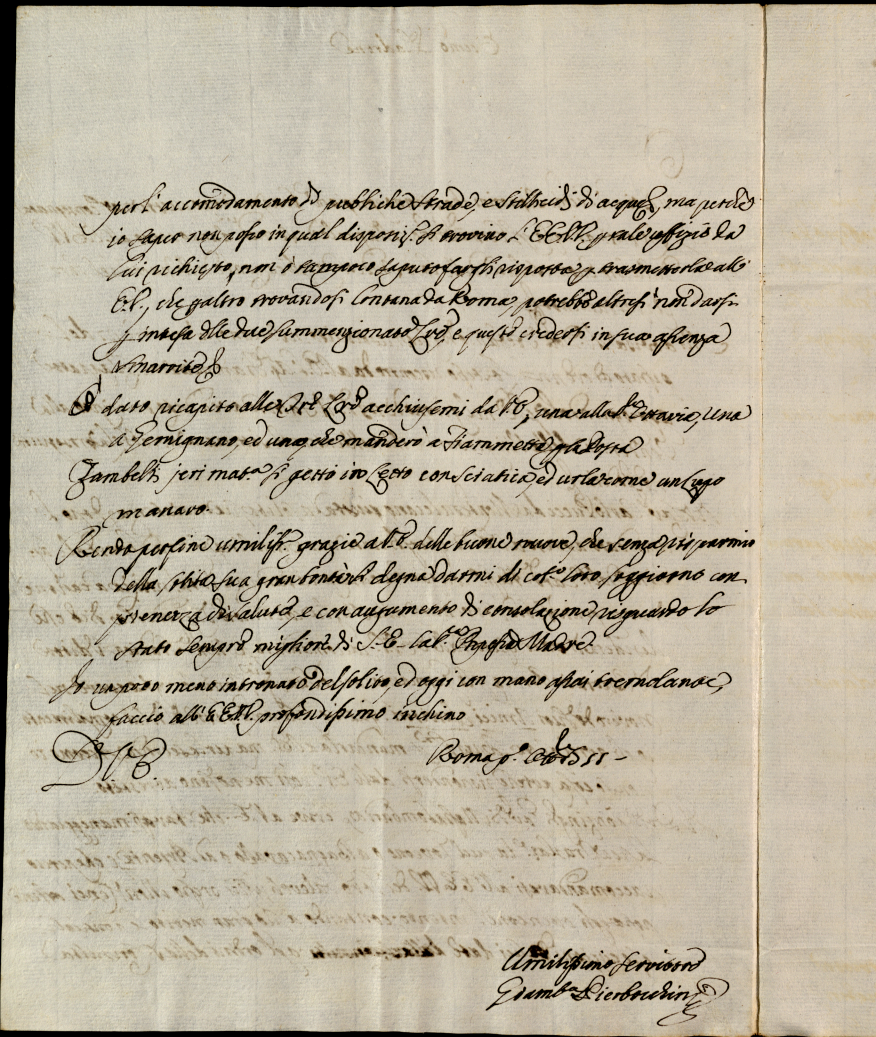 per l'accomodamento di pubbliche strade, e stillicidj di acque, ma perche
io saper non posso in qual disposiz.e si trovino l'EE.VV. p tale uffizio da
lui richiesto, non ò tampoco saputo fargli risposta p trasmetterla all'
E.V., che p altro trovandosi lontana da Roma, potrebbe altresì non darsi
p intesa delle due summenzionate, e questo credersi in sua assenza
smarrite
dato ricapito alle acchiusemi da V.E., una alla Ottavia, una
a Gemignano, ed una, che manderò a Fiammetta p la Posta
Zambelli jeri mat.a si gettò in Letto con Sciatica, ed urla come un Lupo
manaro.
Rendo per fine umiliss.e grazie a V.E. delle buone nuove, che senza risparmio
della solita sua gran bontà si degna darmi di cot.o loro soggiorno con
di salute, e con augumento di consolazione risguardo lo
stato sempre migliore di S.E. la Madre.
Io un poco meno intronato del solito, ed oggi con mano assai tremolante,
faccio all'EE.VV. profondissimo inchino
D.V.E.
Roma p.o
Umilissimo Servitore
Giamb.a Pierbocchini